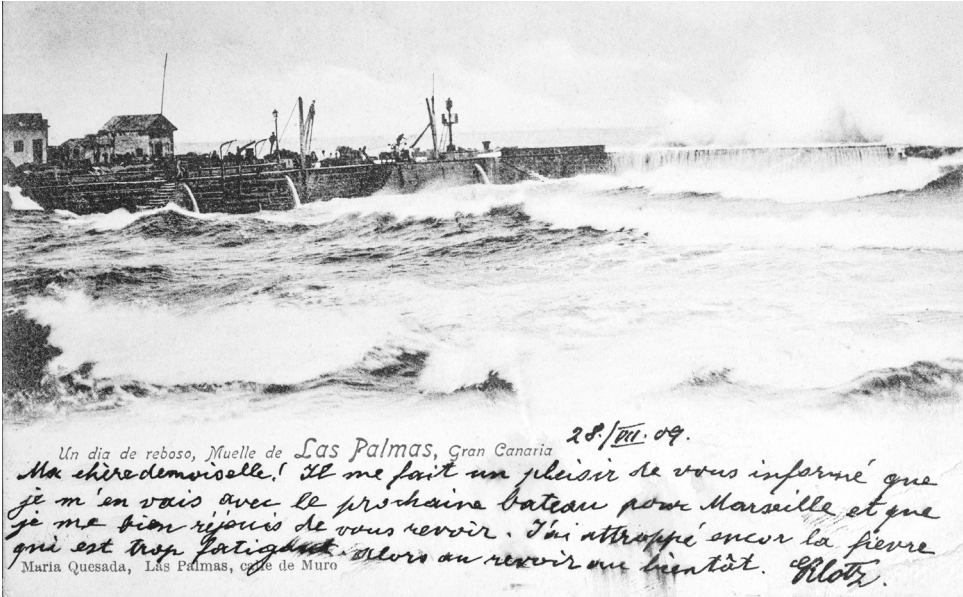 28./VII. 09.
Un dia de reboso, Muelle de Las Palmas, Gran Canaria
Ma chère demoiselle! Il me fait un pleisir de vous informé que
je m'en vais avec le prochaine bateau pour Marseille et que
je me bien réjouis de vous revoir. J'ai attrappé encor la fievre
qui est trop fatigant. alors au revoir au bientôt. Klotz.
Maria Quesada, Las Palmas, calle de Muro